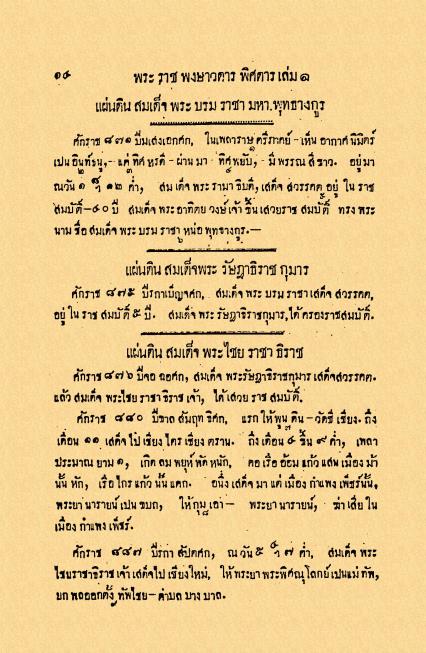 ๑๔ พระ ราช พงษาวดาร พิศดาร เล่ม ๑
แผ่นดิน สมเด็จ พระ บรม ราชา มหา.พุทธางกูร
ศักราช ๘๗๑ ปีมเสงเอกศก, ในเพลาราษตรีภาคย์-เห็น อากาศ นิมิตร์
เปน อินทร์ธนู,-แต่ ทิศ หรดี-ผ่าน มา ทิศพยับ,-มี พรรณ สี ขาว. อยู่มา
ณวัน ๑ ๑๒ ค่ำ, สมเด็จ พระ รามา ธิบดี, เสด็จ สวรรคต อยู่ ใน ราช
สมบัติ-๔๐ ปี สมเด็จ พระ อาทิตย วงษ์ เจ้า ขึ้น เสวยราช สมบัติ ทรง พระ
นาม ชื่อ สมเด็จ พระ บรม ราชา หน่อ พุทธางกูร.—
แผ่นดิน สมเด็จพระ รัษฎาธิราช กุมาร
ศักราช ๘๗๕ ปีรกาเบ็ญจศก, สมเด็จ พระ บรม ราชา เสด็จ สวรรคต,
อยู่ ใน ราช สมบัติ ๕ ปี. สมเด็จ พระ รัษฎาธิราชกุมาร, ได้ ครองราชสมบัติ.
แผ่นดิน สมเด็จ พระไชย ราชา ธิราช
ศักราช ๘๗๖ ปีจอ ฉอศก, สมเด็จ พระรัษฎาธิราชกุมาร เสด็จสวรรคต.
แล้ว สมเด็จ พระไชย ราชา ธิราช เจ้า, ได้ เสวย ราช สมบัติ.
ศักราช ๘๘๐ ปีขาล สัมฤทธิ ศก, แรก ให้พูน ดิน-วัดชี เชียง. ถึง
เดือน ๑๑ เสด็จ ไป เชียง ไกร เชียง ตราน. ถึง เดือน ๔ ขึ้น ๙ ค่ำ, เพลา
ประมาณ ยาม ๑, เกิด ลม พยุห์ พัด หนัก, คอ เรือ อ้อม แก้ว แสน เมือง ม้า
นั้น หัก, เรือ ไกร แก้ว นั้น แตก. อนึ่ง เสด็จ มา แต่ เมือง กำแพง เพ็ชร์นั้น,
พระยา นารายน์ เปน ขบถ, ให้กุม เอา-พระยา นารายน์, ฆ่า เสีย ใน
เมือง กำแพง เพ็ชร์.
ศักราช ๘๘๗ ปีรกา สัปตศก, ณ วัน ๕ ๗ ค่ำ, สมเด็จ พระ
ไชยราชาธิราช เจ้า เสด็จไป เชียงใหม่, ให้ พระยา พระพิศณุโลกย์ เปนแม่ ทัพ,
ยก พลออกตั้ง ทัพไชย-ตำบล บาง บาล.